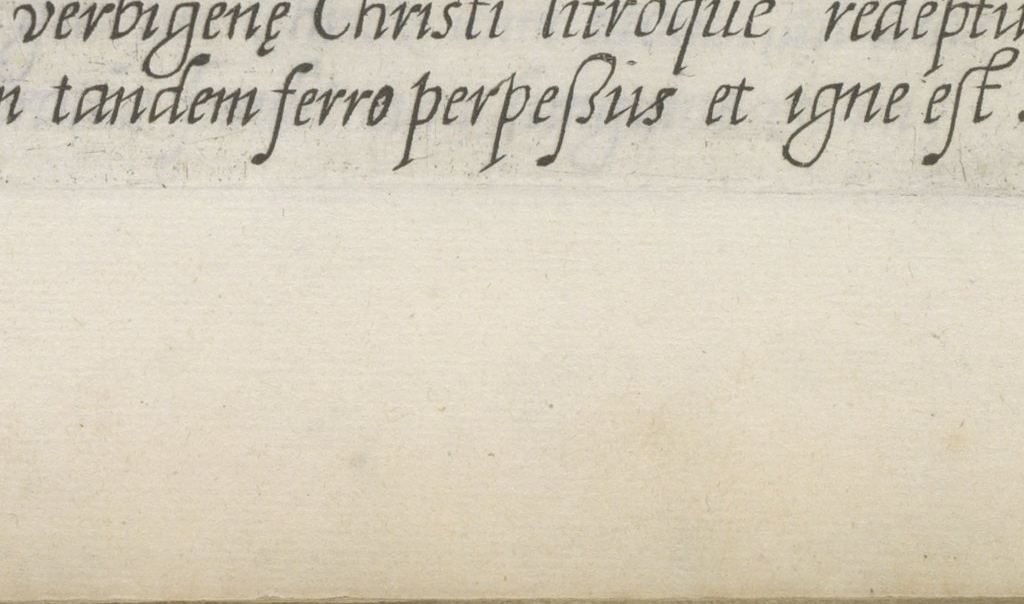 verbigenę Christi litroque redēptu
n tandem ferro perpeſsus et igne eſt